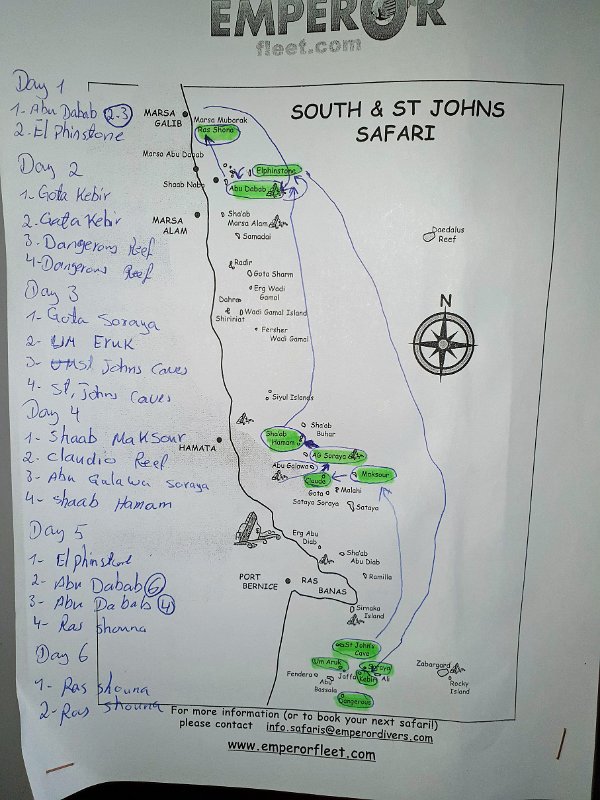 EMPEROR
fleet.com
SOUTH & ST JOHNS
SAFARI
Day 1
1- Abu Dabab 2-3
2- Elphinstone
Day 2
1- Gota Kebir
2. Gata Kebir
3. Dangerous Reef
4- Dangerous Reef
Day 3
1- Gota Soraya
2- UM Eruk
3- St Johns Caves
4- St, Johns Caves
Day 4
1- Shaab Maksour
2. Claudio Reef
3- Abu Galawa Soraya
4- Shaab Hamam
Day 5
1- Elphinstone
2- Abu Dabab 6
3- Abu Dabab 4
4- Ras Shouna
Day 6
1- Ras shouna
2- Ras shouna
MARSA
GALIB
Marsa Mubarak
Ras Shona
Marsa Abu Dabab
Elphinstone
Shaab Naba
Abu Dabab
MARSA
ALAM
Sha'ab
Marsa Alam
Samadai
Daedalus
Reef
Radir
Gota Sharm
Erg Wadi
Gamal
Dahra
Wadi Gamal Island
Shiriniat
Fersher
Wadi Gamal
N
Siyul Islands
Sha'ab
Buhar
Sha'ab
Hamam
HAMATA
AG Soraya
Abu Galawa
Maksour
Claude
Gota
Malahi
Sataya Soraya
Sataya
Erg Abu
Diab
Sha'ab
Abu Diab
Ramilla
PORT
BERNICE
RAS
BANAS
Sirnaka
Island
St John's
Cave
Um Aruk
Soraya
Zabargard
Fendera
Jaffa
Kebir
Ali
Abu
Bassola
Rocky
Island
Dangerous
For more information (or to book your next safari!)
please contact info.safaris@emperordivers.com
www.emperorfleet.com